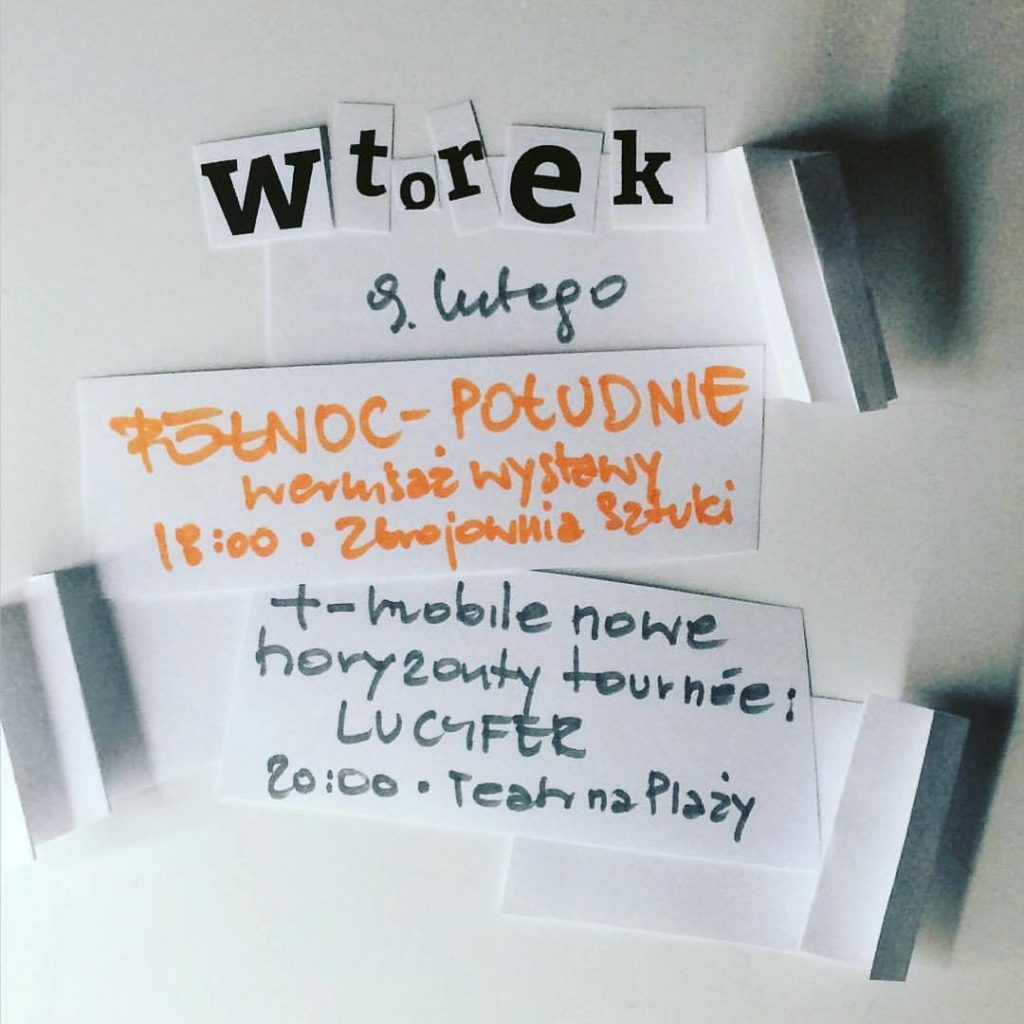 wtorek
9. lutego
PÓŁNOC - POŁUDNIE
wernisaż wystawy
18:00 • Zbrojownia Sztuki
t-mobile nowe
horyzonty tournée:
LUCYFER
20:00 • Teatr na Plaży